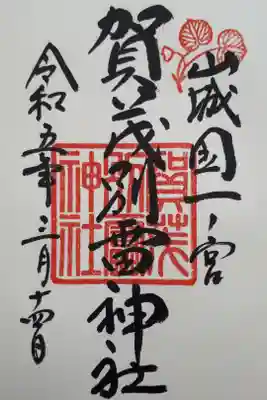 山城国一ノ宮
賀茂別雷神社
令和五年三月十四日
賀茂別雷神社